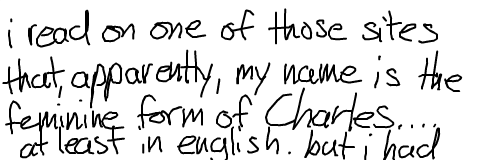 i read on one of those sites
that, apparently, my name is the
feminine form of Charles....
at least in english. but i had